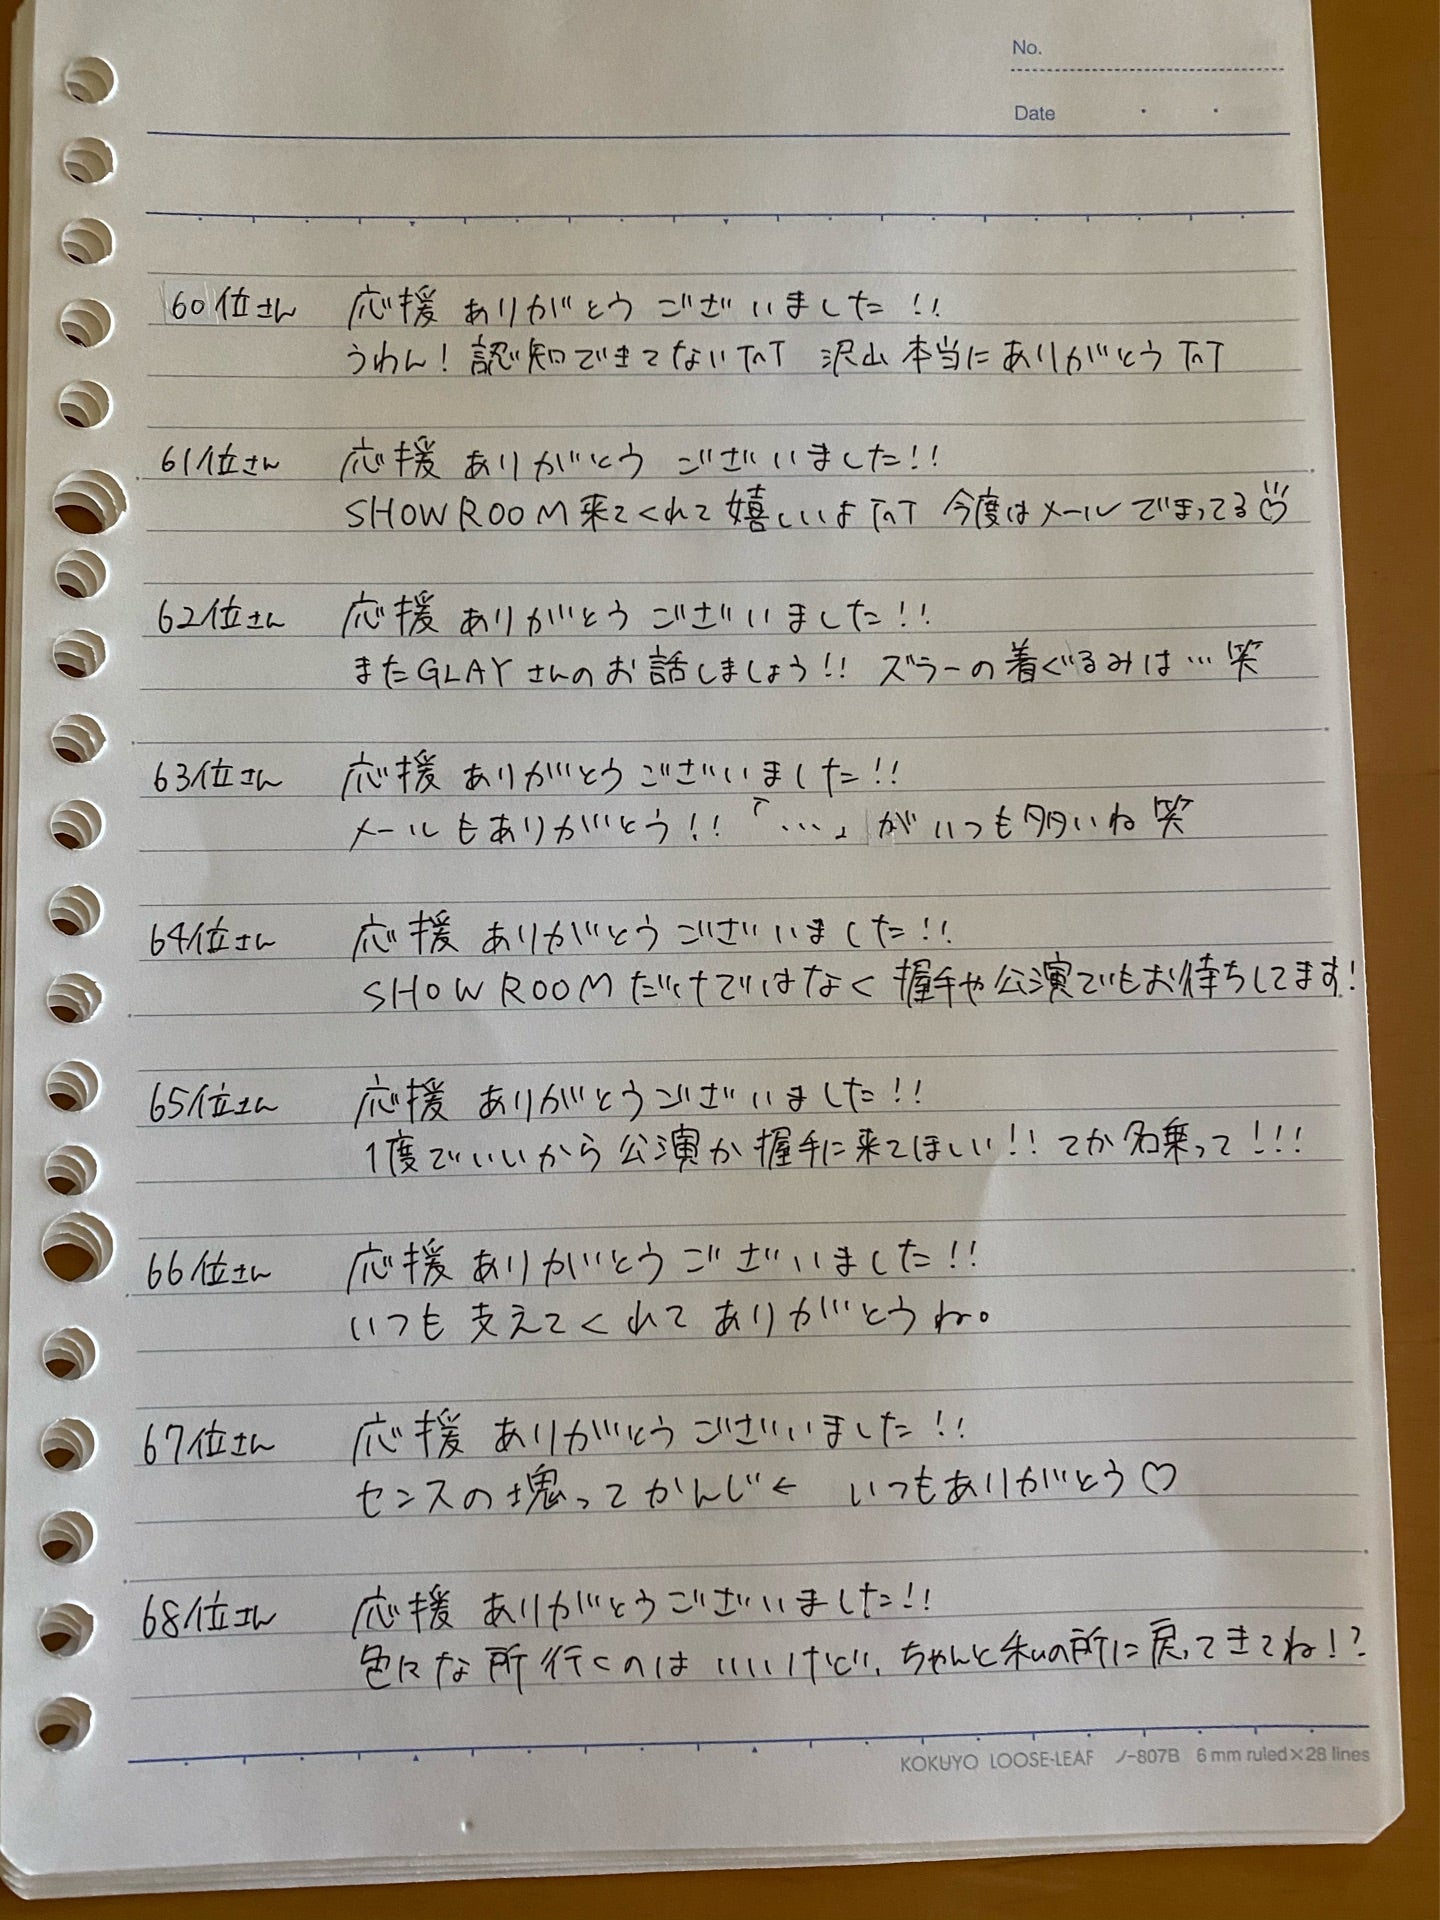 No.
Date
60位さん 応援ありがとうございました!!
うわん!認知できてないTnT 沢山本当にありがとうTnT
61位さん 応援ありがとうございました!!
SHOWROOM来てくれて嬉しいよTnT 今度はメールでまってる♡
62位さん 応援ありがとうございました!!
またGLAYさんのお話しましょう!! ズラーの着ぐるみは…笑
63位さん 応援ありがとうございました!!
メールもありがとう!!「…」がいつも多いね笑
64位さん 応援ありがとうございました!!
SHOWROOMだけではなく握手や公演でもお待ちしてます!
65位さん 応援ありがとうございました!!
1度でいいから公演か握手に来てほしい!! てか名乗って!!!
66位さん 応援ありがとうございました!!
いつも支えてくれてありがとうね。
67位さん 応援ありがとうございました!!
センスの塊ってかんじ← いつもありがとう♡
68位さん 応援ありがとうございました!!
色々な所行くのはいいけど、ちゃんと私の所に戻ってきてね!?
KOKUYO LOOSE-LEAF ノ-807B 6 mm ruled×28 lines